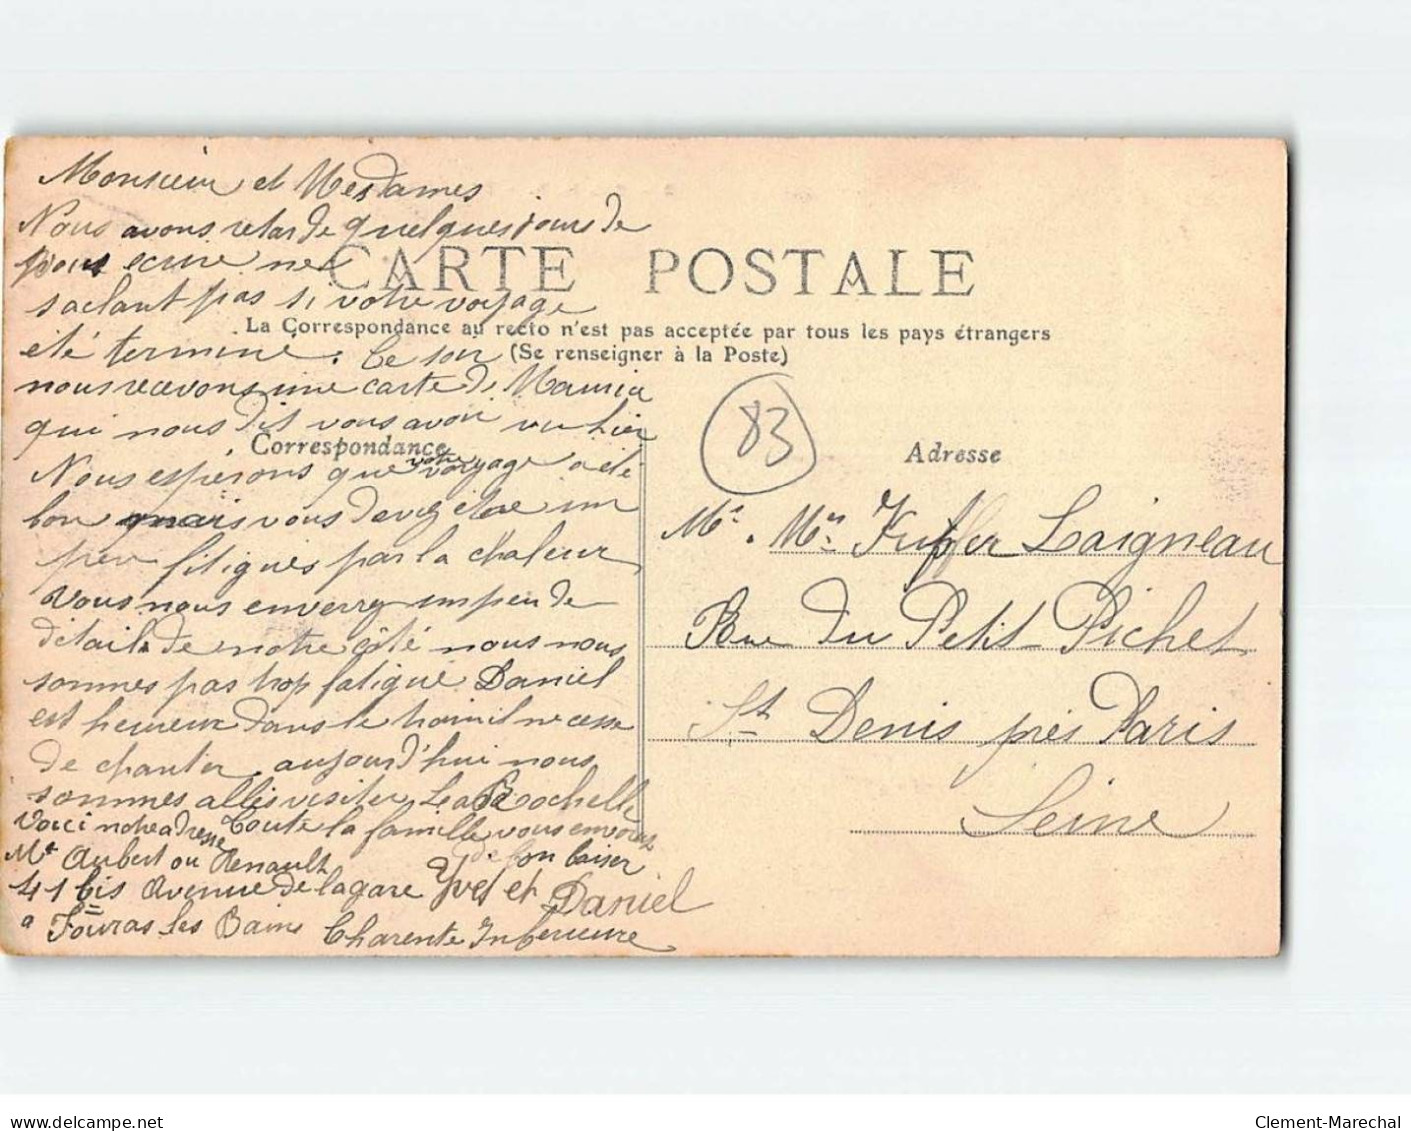 Monsieur et Mesdames
Nous avons retarde quelques jours de
vous ecrire ne
sachant pas si votre voyage
été termine. Ce soir
nous recevons une carte de Mauric
qui nous dit vous avoir vu hier
Nous espérons que votre voyage a ete
bon mais vous devez etre un
peu fatigués par la chaleur
Vous nous enverrez un peu de
détail de notre côté nous nous
sommes pas trop fatigué. Daniel
est heureux dans le train il ne cesse
de chanter. aujourd'hui nous
sommes allés visiter La Rochelle
Voici notre adresse
Toute la famille vous envoie
de bon baiser
Yves et Daniel
Mr Aubert ou Renault
41 bis Avenue de la gare
a Fouras les Bains Charente Inferieure
CARTE POSTALE
La Correspondance au recto n'est pas acceptée par tous les pays étrangers
(Se renseigner à la Poste)
Correspondance
83
Adresse
Mr. Mme Kuffer Laigneau
Rue du Petit Pichet
St Denis près Paris
Seine
delcampe.net
Clement-Marechal